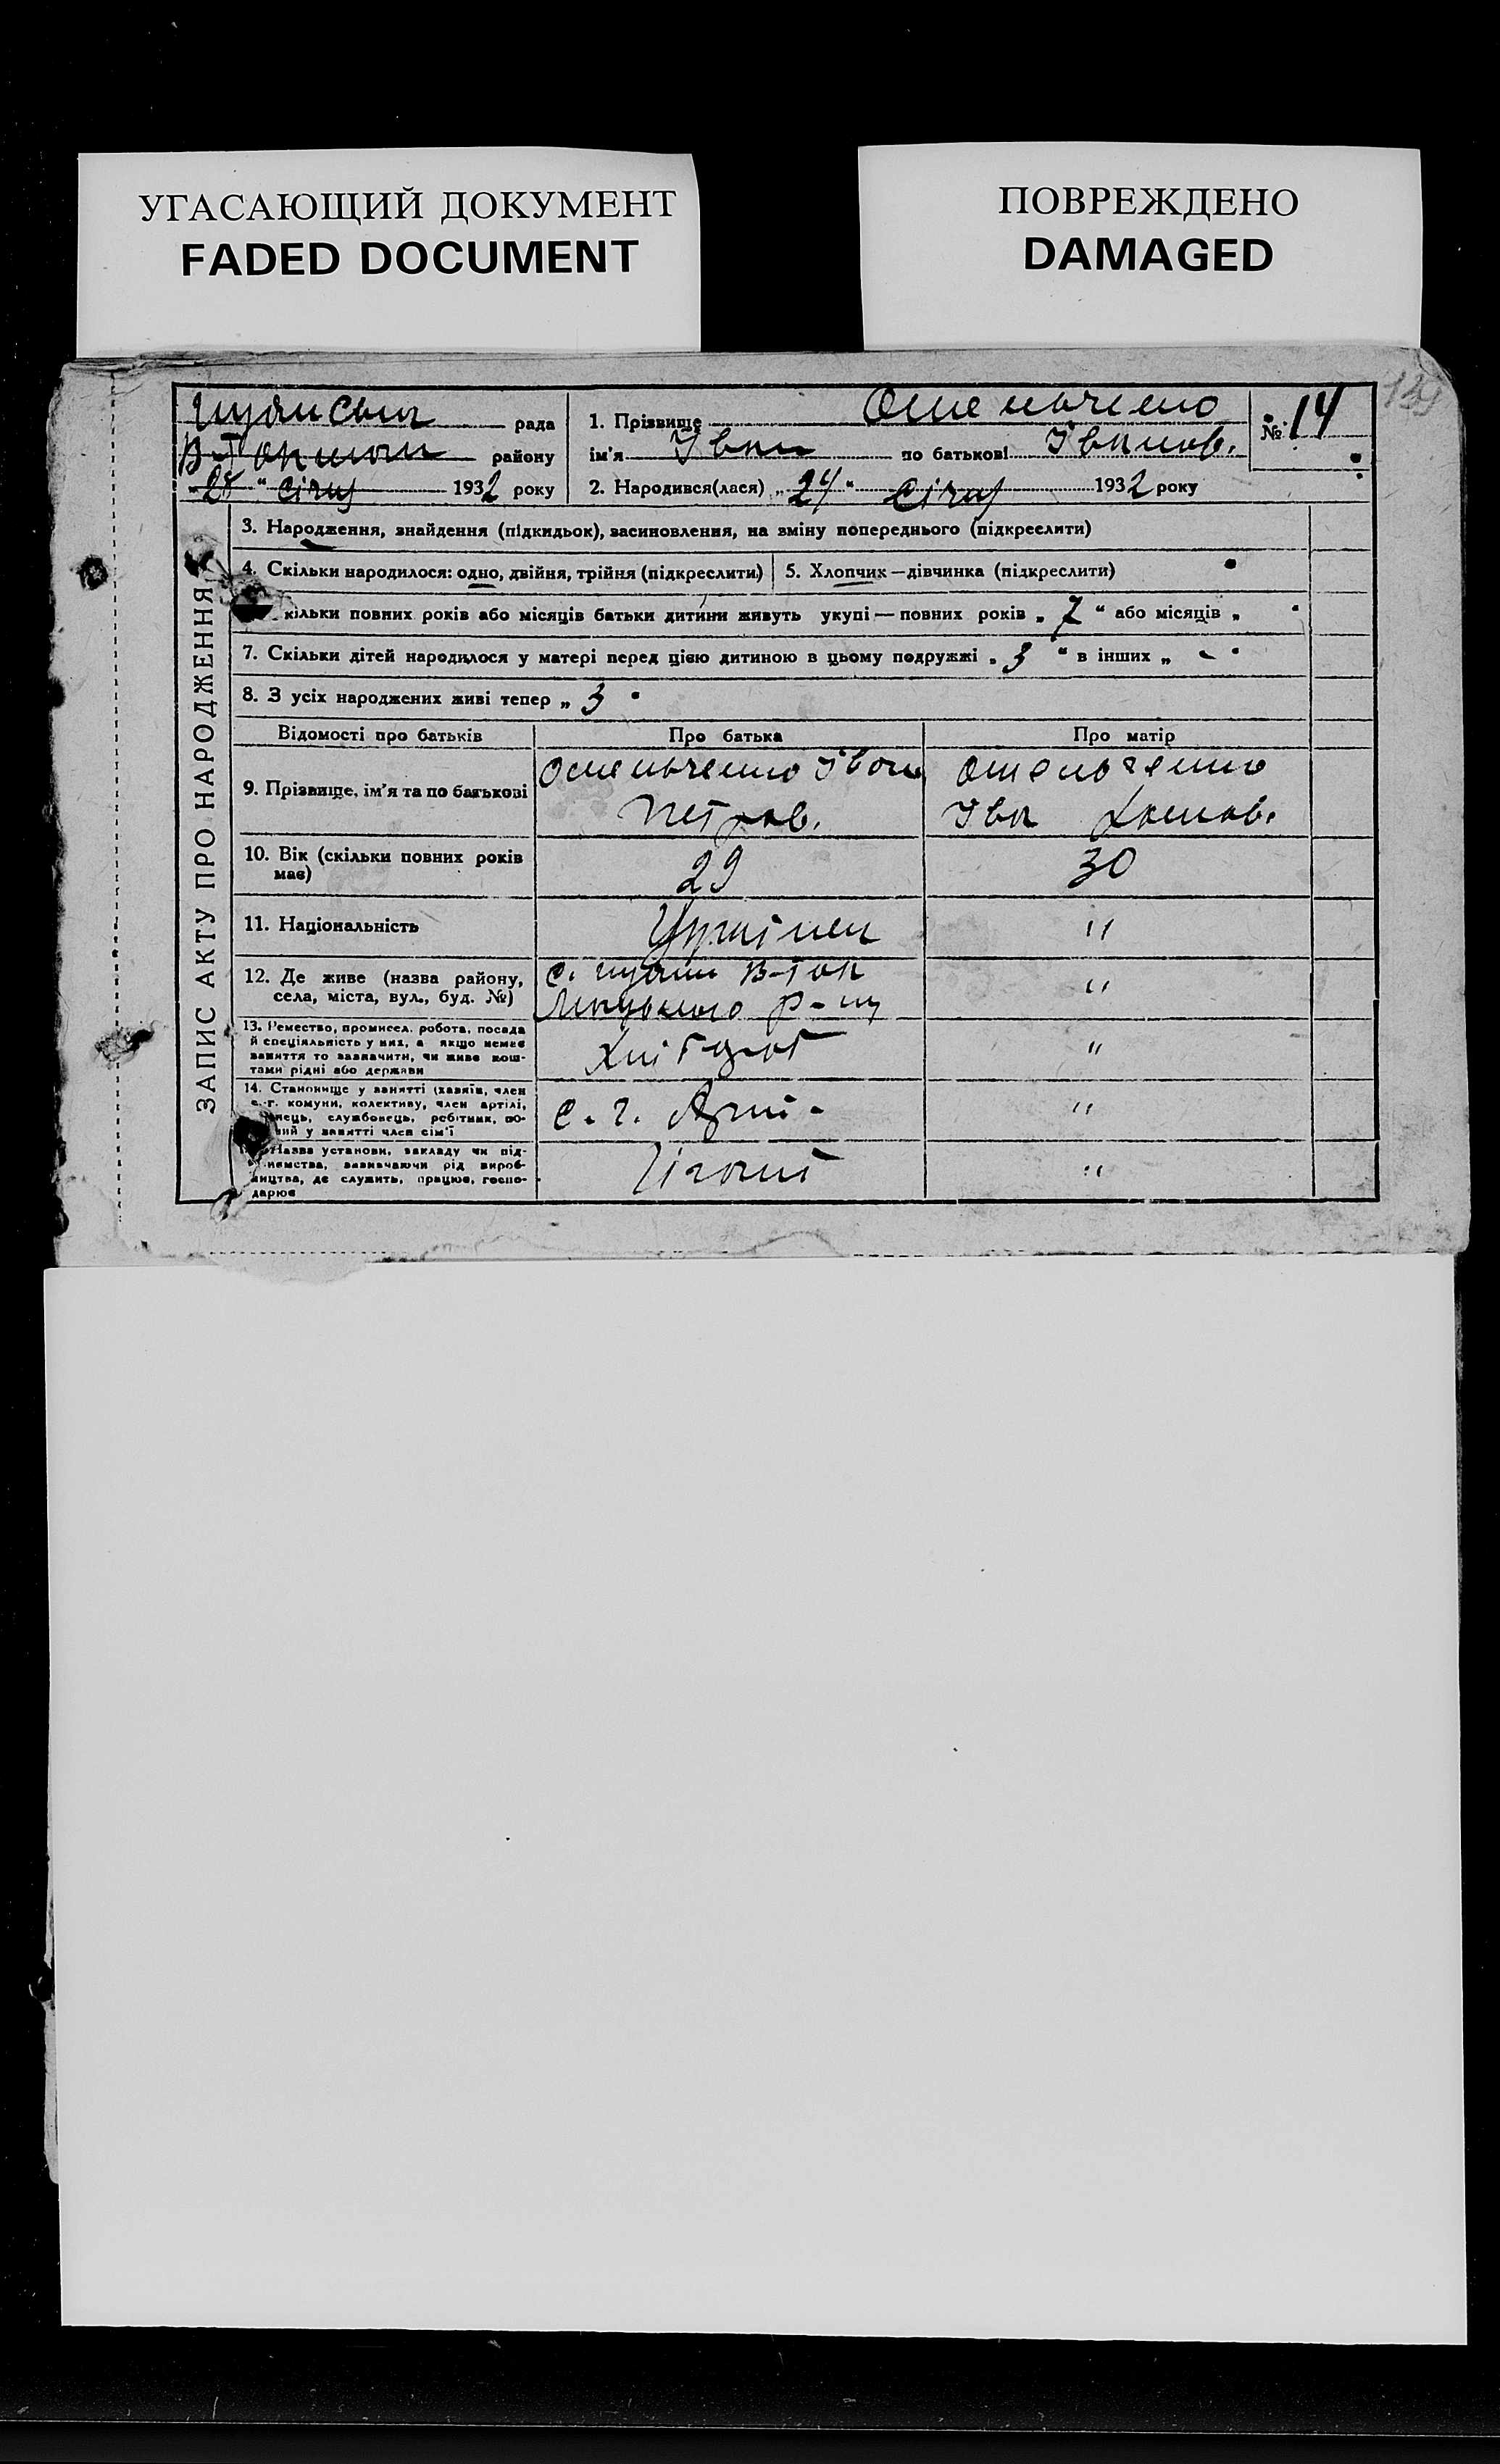 УГАСАЮЩИЙ ДОКУМЕНТ
FADED DOCUMENT
ПОВРЕЖДЕНО
DAMAGED
рада
В-Токмак району
"28" січня 1932 року
1. Прізвище Омельченко
ім'я Іван по батькові Іванов.
№ 14
2. Народився(лася) "24" січня 1932 року
ЗАПИС АКТУ ПРО НАРОДЖЕННЯ
3. Народження, знайдення (підкидьок), засиновлення, на зміну попереднього (підкреслити)
4. Скільки народилося: одно, двійня, трійня (підкреслити)
5. Хлопчик—дівчинка (підкреслити)
кільки повних років або місяців батьки дитини живуть укупі — повних років „ 7 " або місяців „ "
7. Скільки дітей народилося у матері перед цією дитиною в цьому подружжі „ 3 " в інших „ - "
8. З усіх народжених живі тепер „ 3 "
Відомості про батьків
Про батька
Про матір
9. Прізвище, ім'я та по батькові
Омельченко Іван
Петров.
Омельченко
10. Вік (скільки повних років має)
29
30
11. Національність
Українец
"
12. Де живе (назва району, села, міста, вул., буд. №)
В-Ток
р-ну
"
13. Ремество, промисел, робота, посада
й спеціяльність у них, а якщо немає
заняття то зазначити, чи живе кош-
тами рідні або держави
Хлібороб
"
14. Становище у занятті (хазяїн, член
с.-г. комуни, колективу, член артілі,
нець, службовець, робітник, по-
ний у занятті член сім'ї
с. г. Арт.
"
Назва установи, закладу чи під-
ємства, зазначаючи рід вироб-
ництва, де служить, працює, госпо-
дарює
"